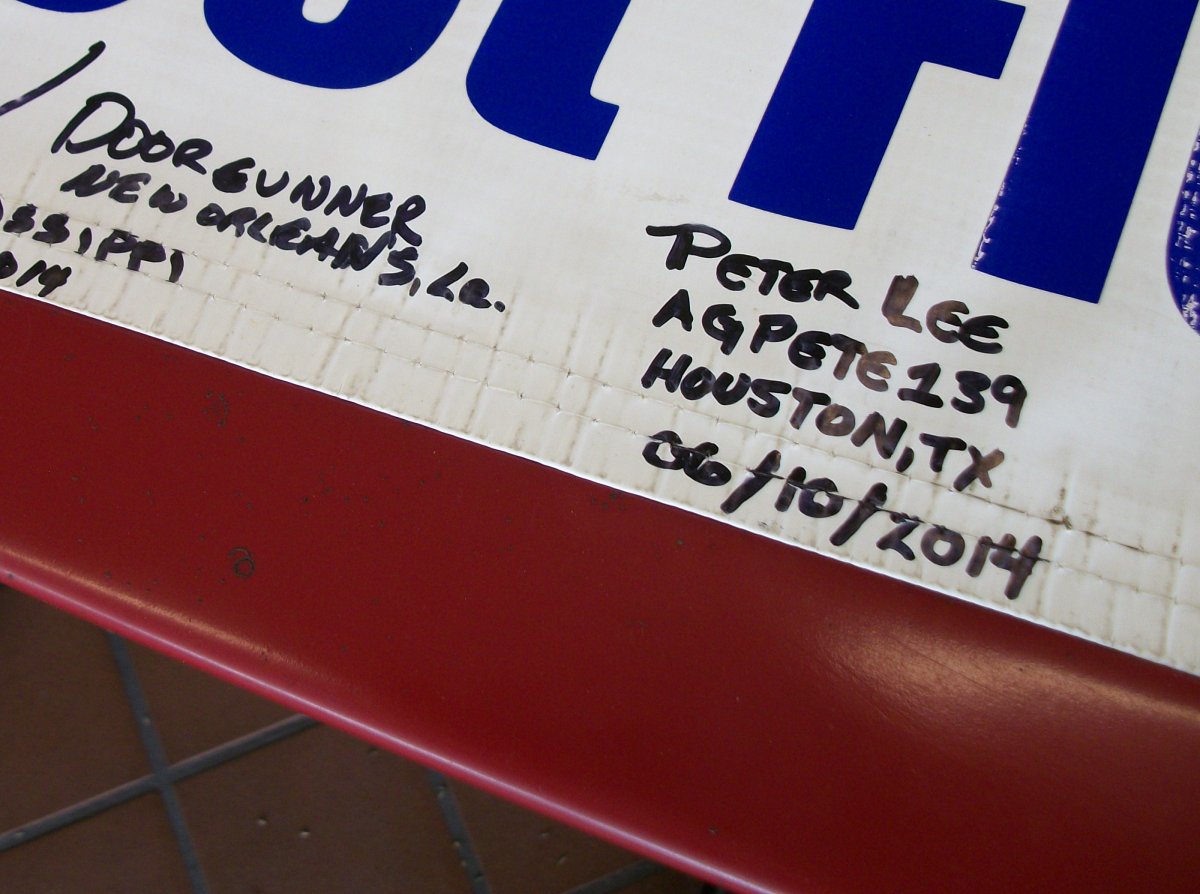 DOORGUNNER
NEW ORLEANS, La.
SSIPPI
014
PETER LEE
AGPETE139
HOUSTON, TX
06/10/2014